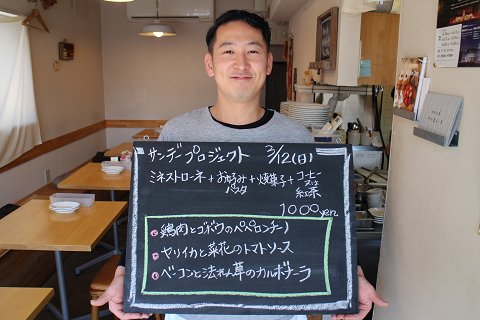 サンデープロジェクト 3/12(日)
ミネストローネ+お好み+焼菓子+コーヒー
パスタ 又は
紅茶
1000yen
鶏肉とゴボウのペペロンチーノ
ヤリイカと菜花のトマトソース
ベーコンと法れん草のカルボナーラ